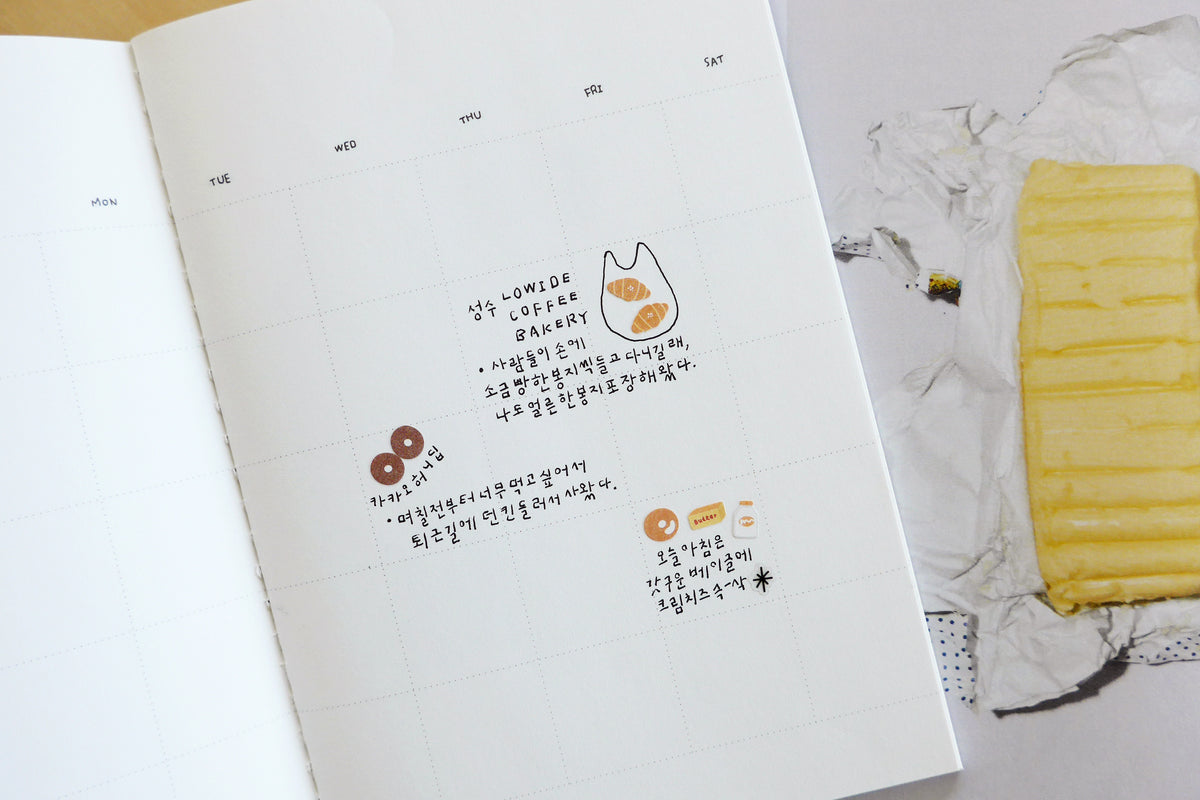 MON
TUE
WED
THU
FRI
SAT
성수 LOWIDE
COFFEE
BAKERY
• 사람들이 손에
소금빵 한봉지씩 들고 다니길래,
나도 얼른 한봉지 포장해 왔다.
카카오허니딥
• 며칠전부터 너무 먹고 싶어서
퇴근길에 던킨 들러서 사왔다.
Butter
오늘 아침은
갓구운 베이글에
크림치즈 슥-삭